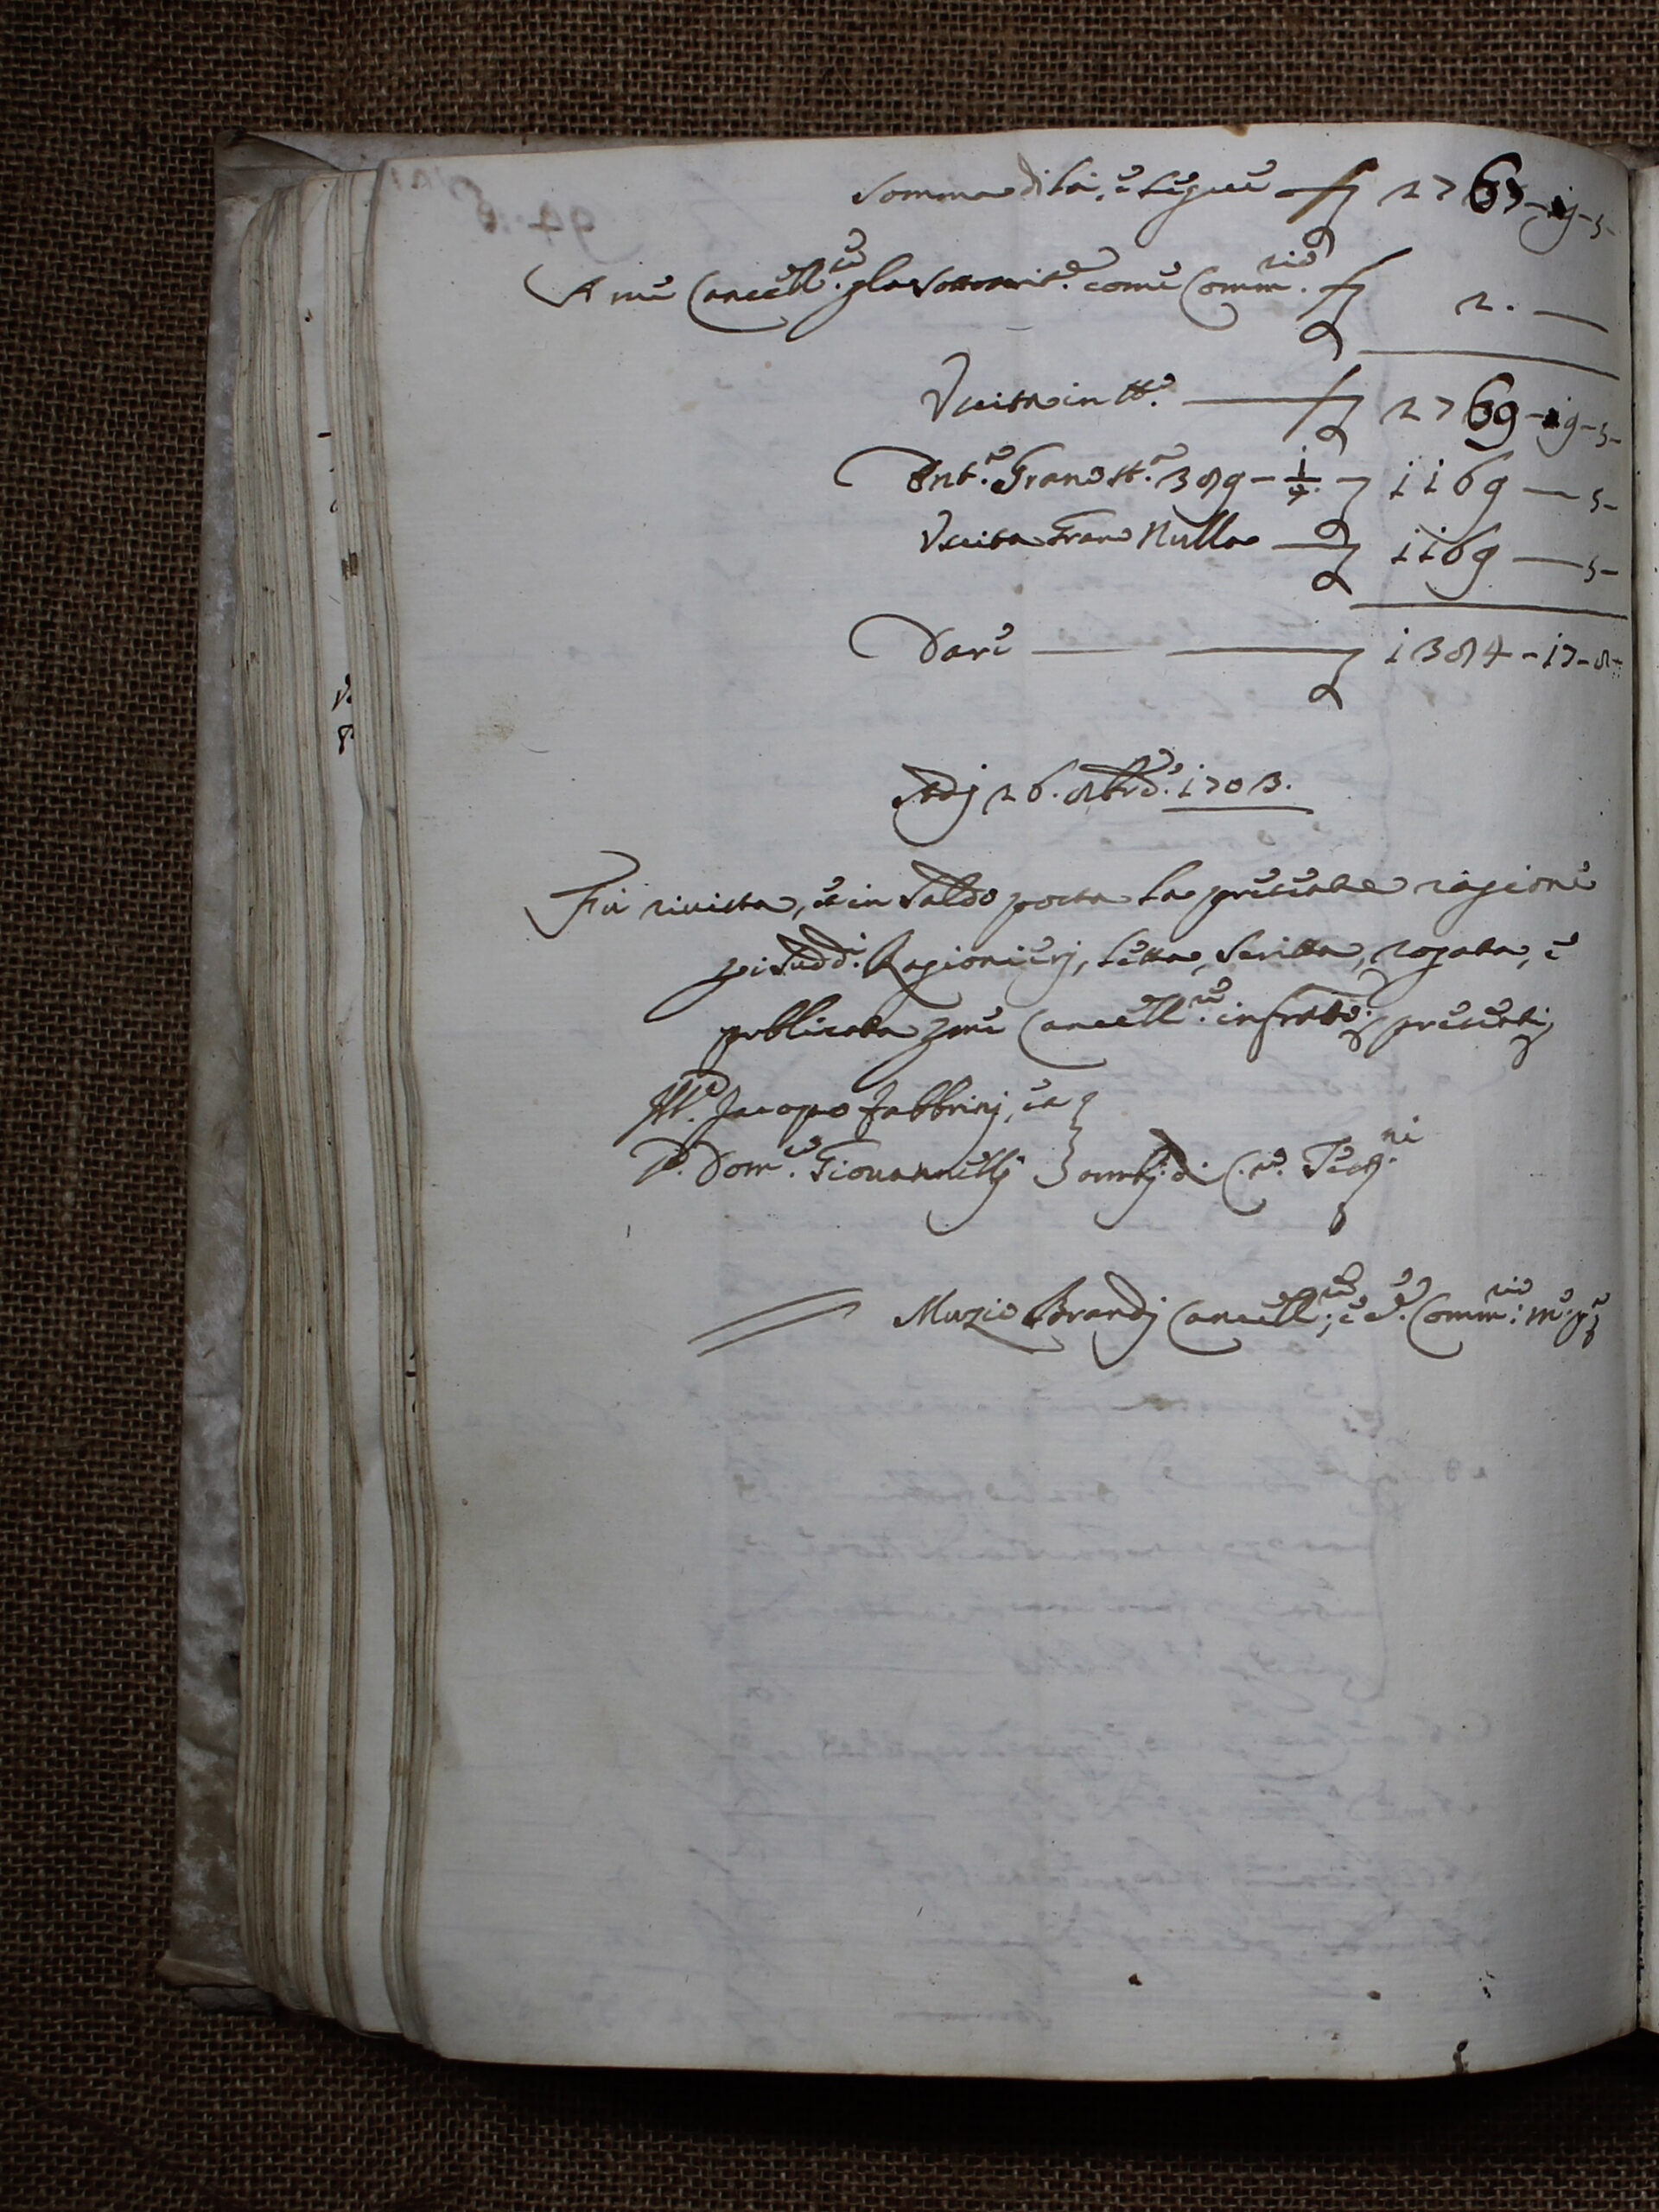 Somma di là, e segue £ 2767-19-5-
A me Cancell.re p la sottoscrit.e come Comm.rio £ 2. —
Uscita in tt.o — £ 2769-19-5-
Ent.a Grano st.a 389 - 1/4. £ 1169 — 5-
Uscita Grano Nulla — £ 1169 — 5-
Dare — £ 1384-17-8-
Adj 26. 8bre. 1703.
Fù rivista, et in saldo posta la presente ragione
p i sudd.i Ragionierj, letta, scritta, rogata, e
pubblicata p me Cancell.re infratto; presentj
M.o Jacopo Fabbrinj, et a
P. Dom.co Giovannellj ambj di C. Testj.ni
Muzio Brandj Cancell.re, e Comm.rio m.o p.a